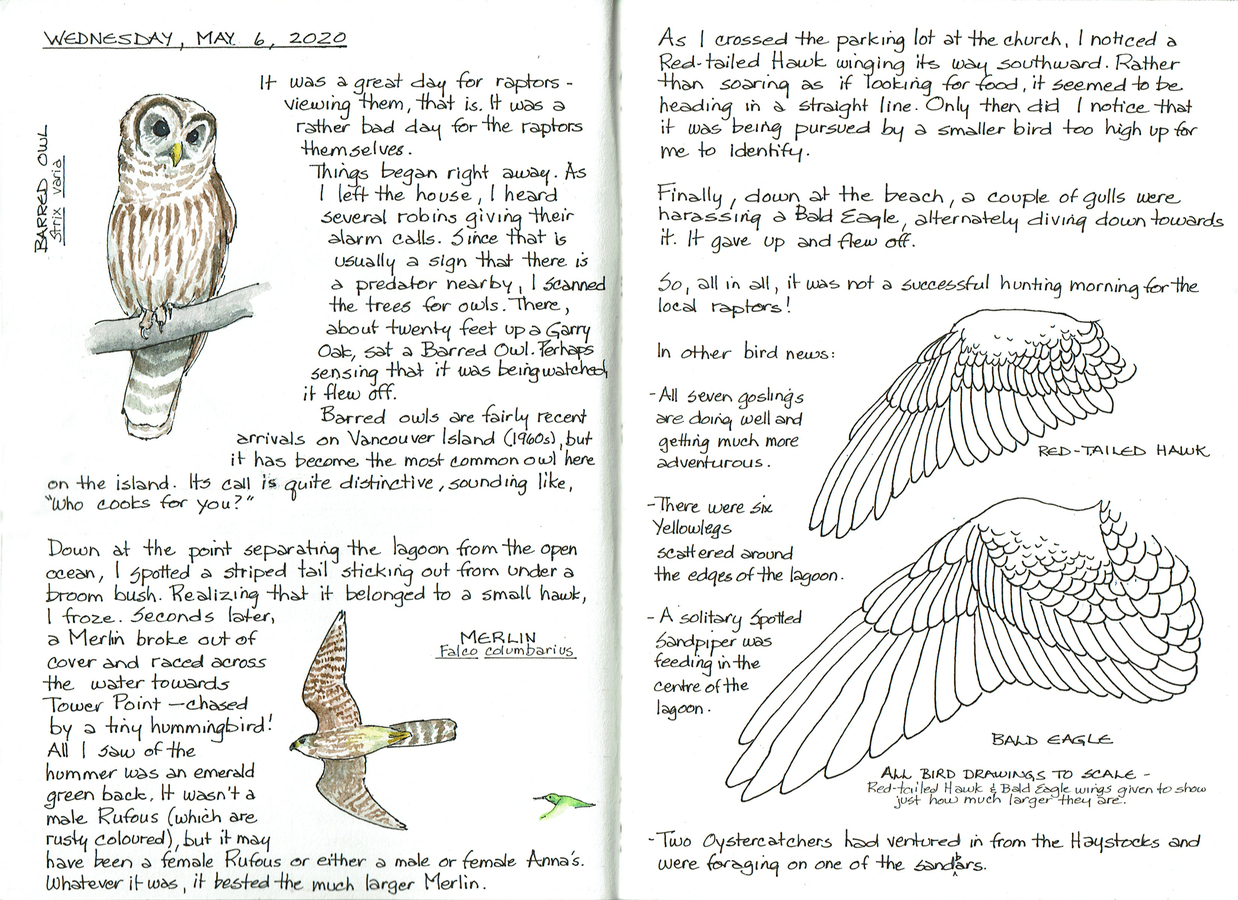 WEDNESDAY, MAY 6, 2020
BARRED OWL
strix varia
It was a great day for raptors -
viewing them, that is. It was a
rather bad day for the raptors
themselves.
Things began right away. As
I left the house, I heard
several robins giving their
alarm calls. Since that is
usually a sign that there is
a predator nearby, I scanned
the trees for owls. There,
about twenty feet up a Garry
Oak, sat a Barred Owl. Perhaps
sensing that it was being watched,
it flew off.
Barred owls are fairly recent
arrivals on Vancouver Island (1960s), but
it has become the most common owl here
on the island. Its call is quite distinctive, sounding like,
"Who cooks for you?"
Down at the point separating the lagoon from the open
ocean, I spotted a striped tail sticking out from under a
broom bush. Realizing that it belonged to a small hawk,
I froze. Seconds later,
a Merlin broke out of
cover and raced across
the water towards
Tower Point - chased
by a tiny hummingbird!
All I saw of the
hummer was an emerald
green back. It wasn't a
male Rufous (which are
rusty coloured), but it may
have been a female Rufous or either a male or female Anna's.
Whatever it was, it bested the much larger Merlin.
MERLIN
Falco columbarius
As I crossed the parking lot at the church, I noticed a
Red-tailed Hawk winging its way southward. Rather
than soaring as if looking for food, it seemed to be
heading in a straight line. Only then did I notice that
it was being pursued by a smaller bird too high up for
me to identify.
Finally, down at the beach, a couple of gulls were
harassing a Bald Eagle, alternately diving down towards
it. It gave up and flew off.
So, all in all, it was not a successful hunting morning for the
local raptors!
In other bird news:
- All seven goslings
are doing well and
getting much more
adventurous.
- There were six
Yellowlegs
scattered around
the edges of the lagoon.
- A solitary Spotted
Sandpiper was
feeding in the
centre of the
lagoon.
RED-TAILED HAWK
BALD EAGLE
ALL BIRD DRAWINGS TO SCALE -
Red-tailed Hawk & Bald Eagle wings given to show
just how much larger they are.
- Two Oystercatchers had ventured in from the Haystocks and
were foraging on one of the sandbars.